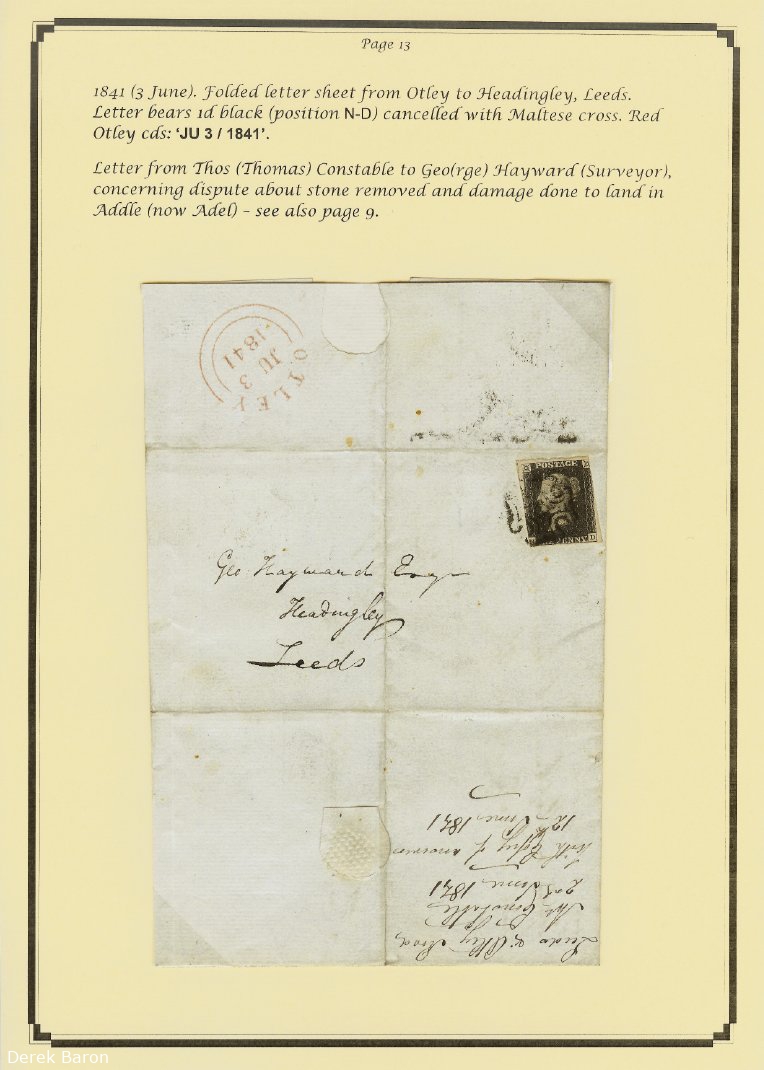 Page 13
1841 (3 June). Folded letter sheet from Otley to Headingley, Leeds.
Letter bears 1d black (position N-D) cancelled with Maltese cross. Red
Otley cds: 'JU 3 / 1841'.
Letter from Thos (Thomas) Constable to Geo(rge) Hayward (Surveyor),
concerning dispute about stone removed and damage done to land in
Addle (now Adel) – see also page 9.
OTLEY
JU 3
1841
POSTAGE
D
Geo Hayward Esqr
Headingley
Leeds
Leeds & Otley Road
Mr Constable
2nd June 1841
with Copy of answer
12th June 1841
Derek Baron